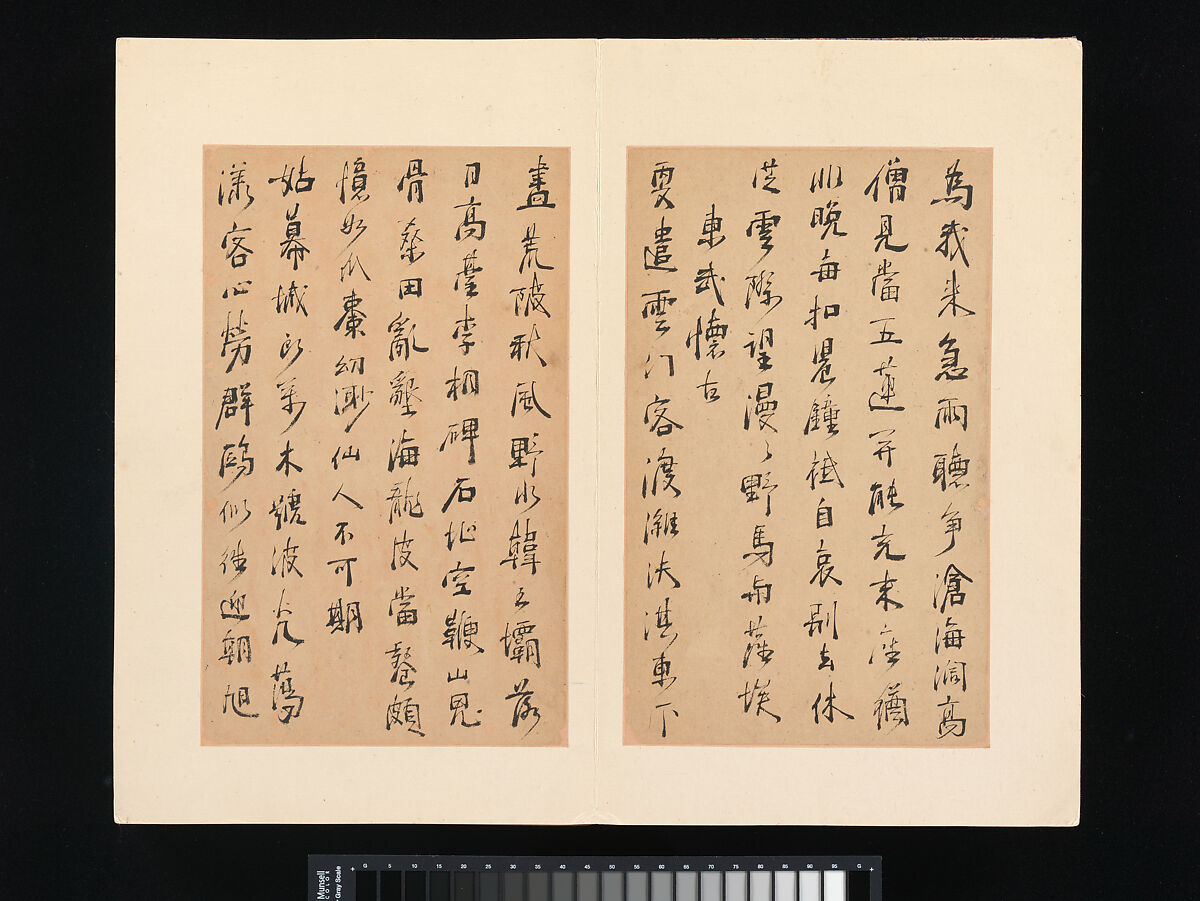 為我來急雨聽爭滄海潤高
僧見當五蓮開能充末座猶
水晚每扣曇鐘祗自哀別去休
從雲際望漫々野馬與落埃
東武懷古
更遣雲門客渡濰決淇東下
盡荒陂秋風野水韓王壩落
日高臺李相碑石址空鞭山鬼
骨桑田亂壑海龍皮當發頗
憶如瓜棗幼渺仙人不可期
姑幕城邊萬木號波光蕩
漾客心勞群鷗似往迎朝旭
Munsell
COLOR
Gray Scale
G 5 10 15 20 25 30 35 40 45 50 55 60 65 70 75 80 85 90 95 G